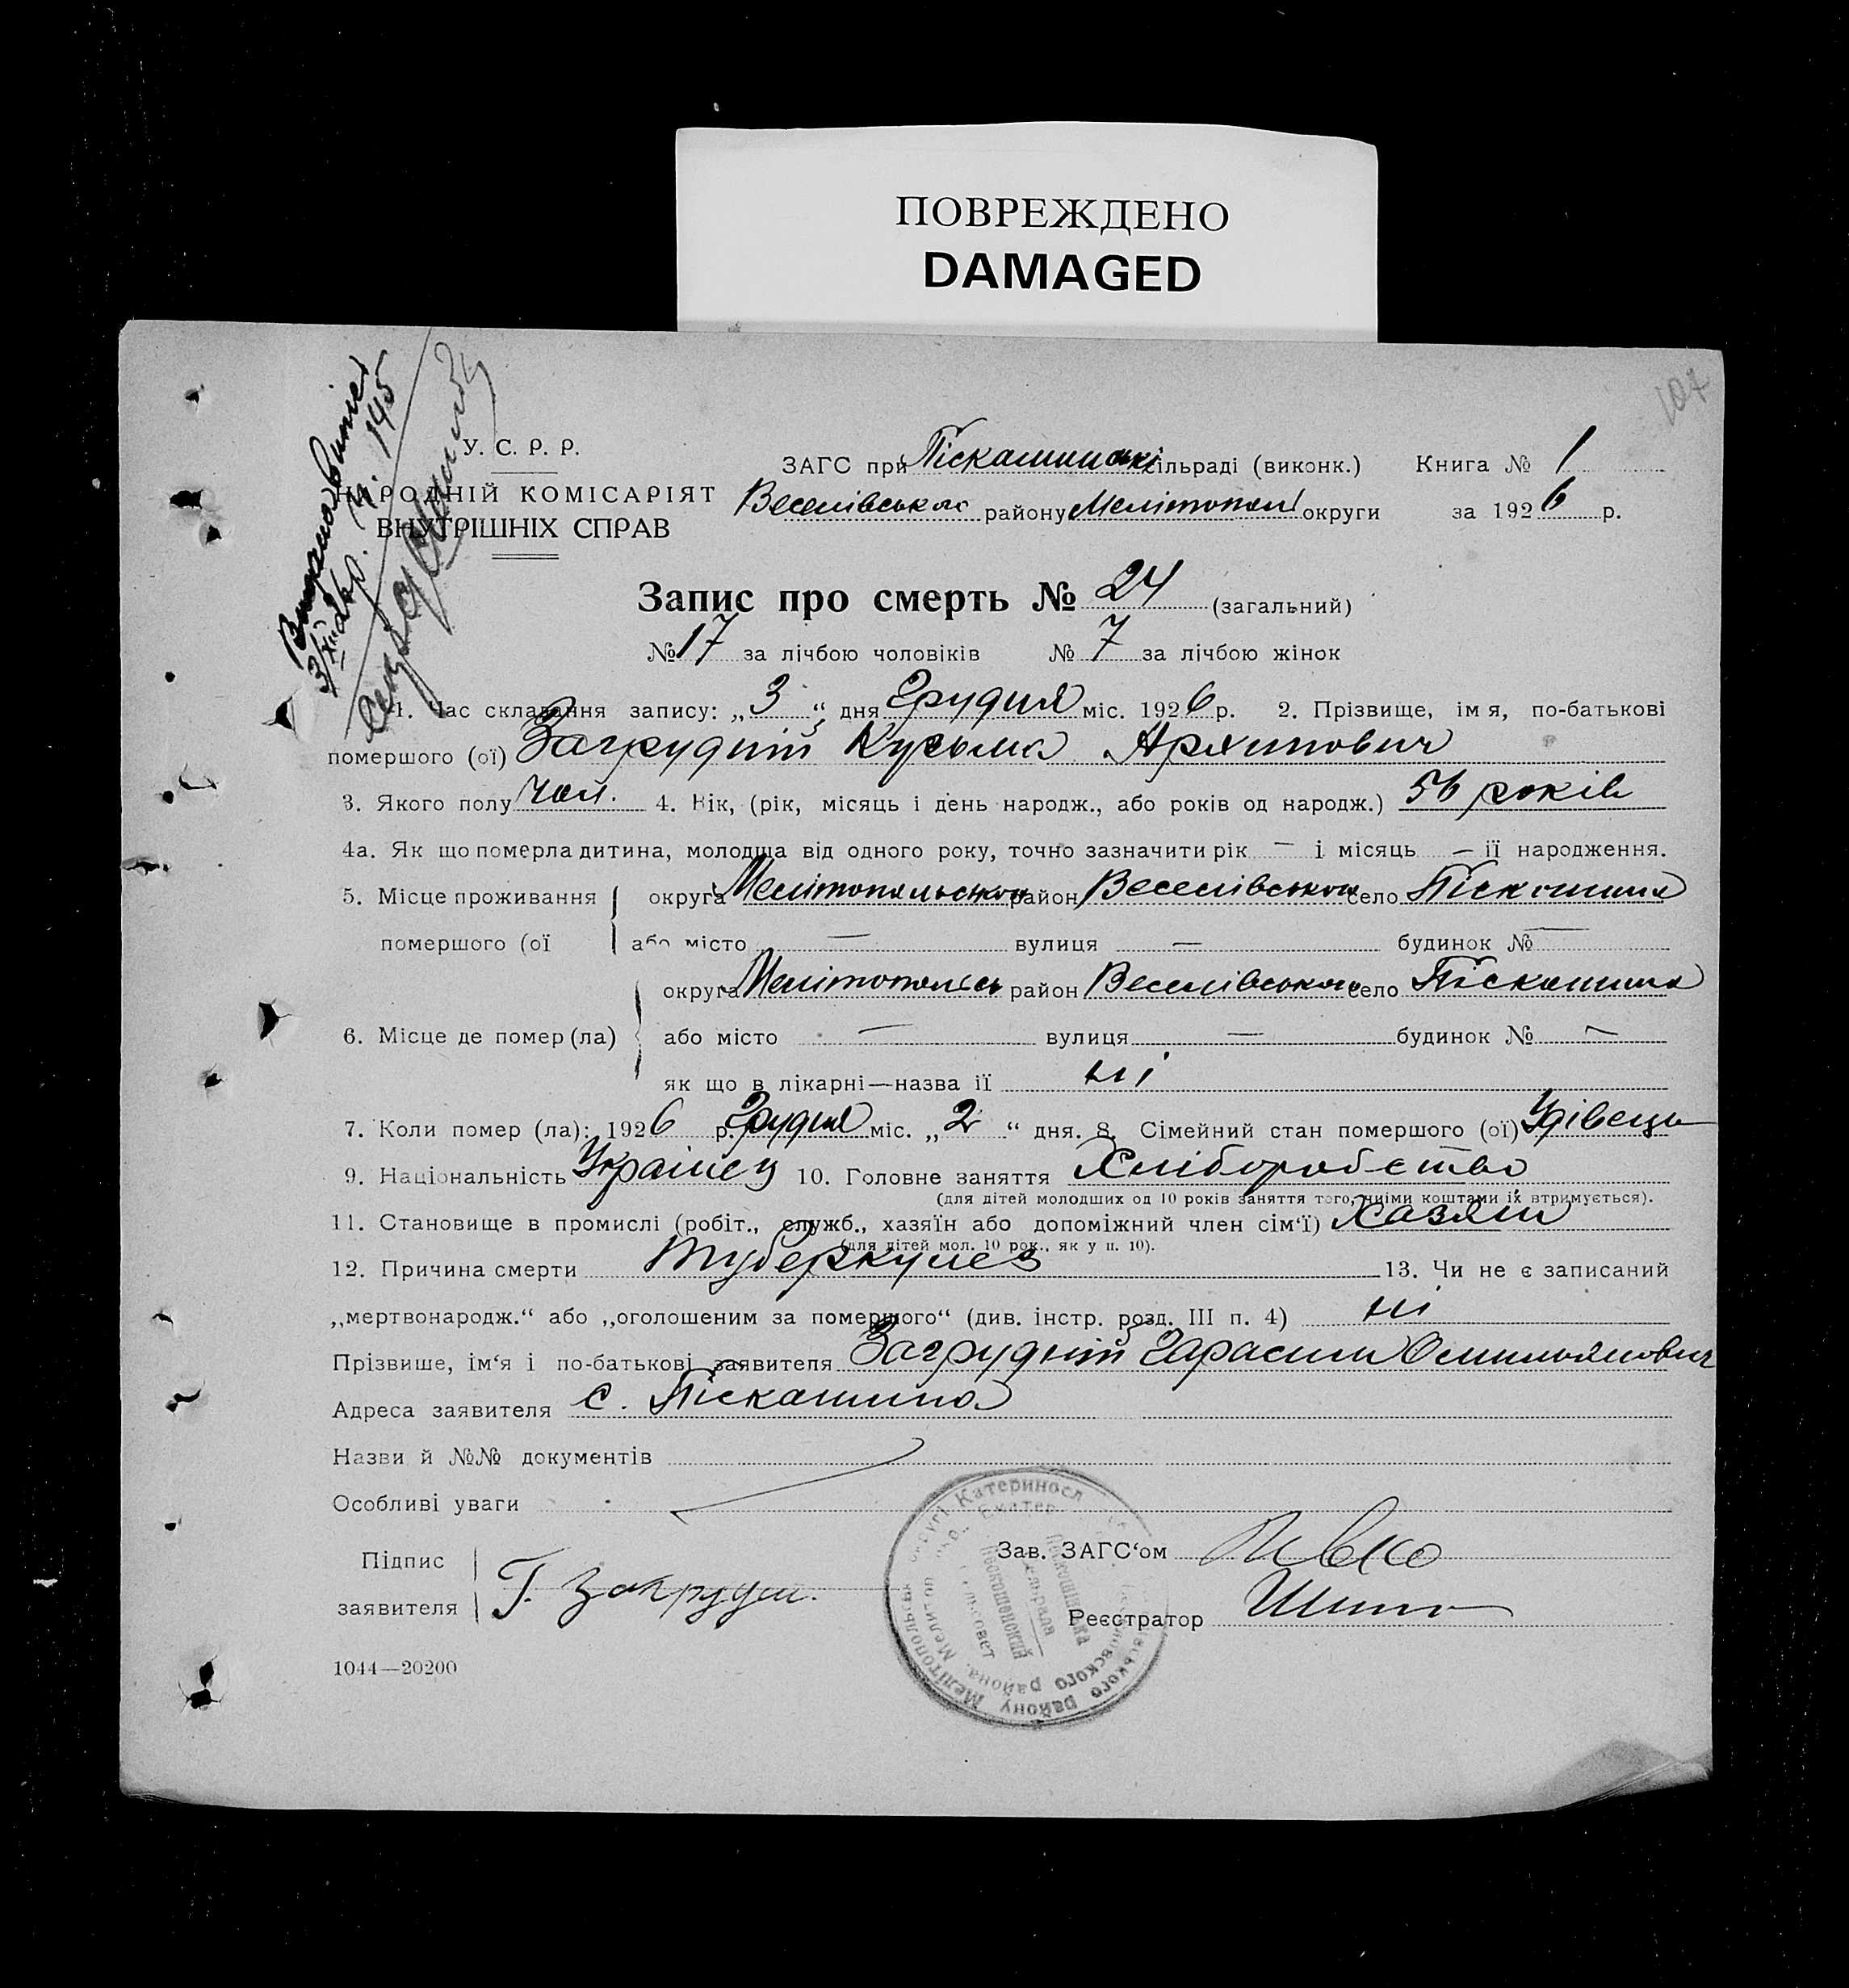 ПОВРЕЖДЕНО
DAMAGED
104
3/XII 26 р. ч. 145
У. С. Р. Р.
НАРОДНІЙ КОМІСАРІЯТ
ВНУТРІШНІХ СПРАВ
ЗАГС при Піскашинській сільраді (виконк.) Книга № 1
Веселівського району Мелітопол округи за 1926 р.
Запис про смерть № 24 (загальний)
№ 17 за лічбою чоловіків № 7 за лічбою жінок
1. Час складання запису: „3“ дня Грудня міс. 1926 р. 2. Прізвище, імя, по-батькові
помершого (ої) Загрудній Кузьма Архипович
3. Якого полу чол. 4. Вік, (рік, місяць і день народж., або років од народж.) 56 років
4а. Як що померла дитина, молодша від одного року, точно зазначити рік — і місяць — її народження.
5. Місце проживання округа Мелітопольського район Веселівського село Піскошина
помершого (ої або місто — вулиця — будинок № —
округа Мелітопольсь район Веселівського село Піскашина
6. Місце де помер (ла) або місто — вулиця — будинок № —
як що в лікарні—назва її ні
7. Коли помер (ла): 1926 р. Грудня міс. „2“ дня. 8. Сімейний стан помершого (ої) Удівець
9. Національність Українец 10. Головне заняття Хліборобство
(для дітей молодших од 10 років заняття того, чиїми коштами їх втримується).
11. Становище в промислі (робіт., служб., хазяїн або допоміжний член сім‘ї) Хазяїн
(для дітей мол. 10 рок., як у п. 10).
12. Причина смерти туберкулез 13. Чи не є записаний
„мертвонародж.“ або „оголошеним за помершого“ (див. інстр. розд. III п. 4) ні
Прізвише, ім‘я і по-батькові заявителя Загрудній Гарасим Омильянович
Адреса заявителя с. Піскашина
Назви й №№ документів
Особливі уваги
Підпис
заявителя Г. Загрудн.
Зав. ЗАГС‘ом
Реєстратор
1044—20200